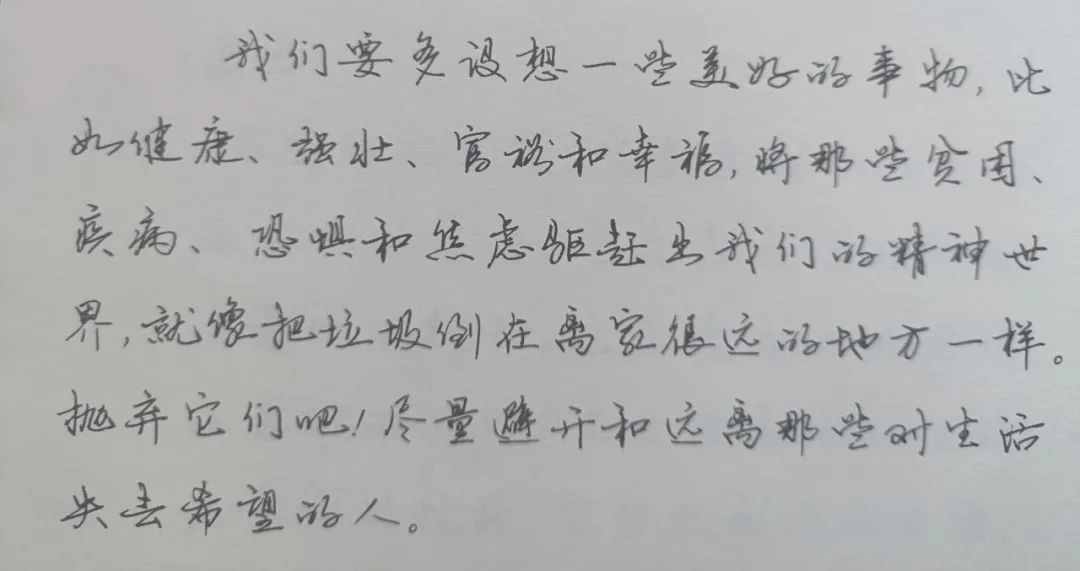 我们要多设想一些美好的事物,比
如健康、强壮、富裕和幸福,将那些贫困、
疾病、恐惧和焦虑驱赶出我们的精神世
界,就像把垃圾倒在离家很远的地方一样。
抛弃它们吧!尽量避开和远离那些对生活
失去希望的人。